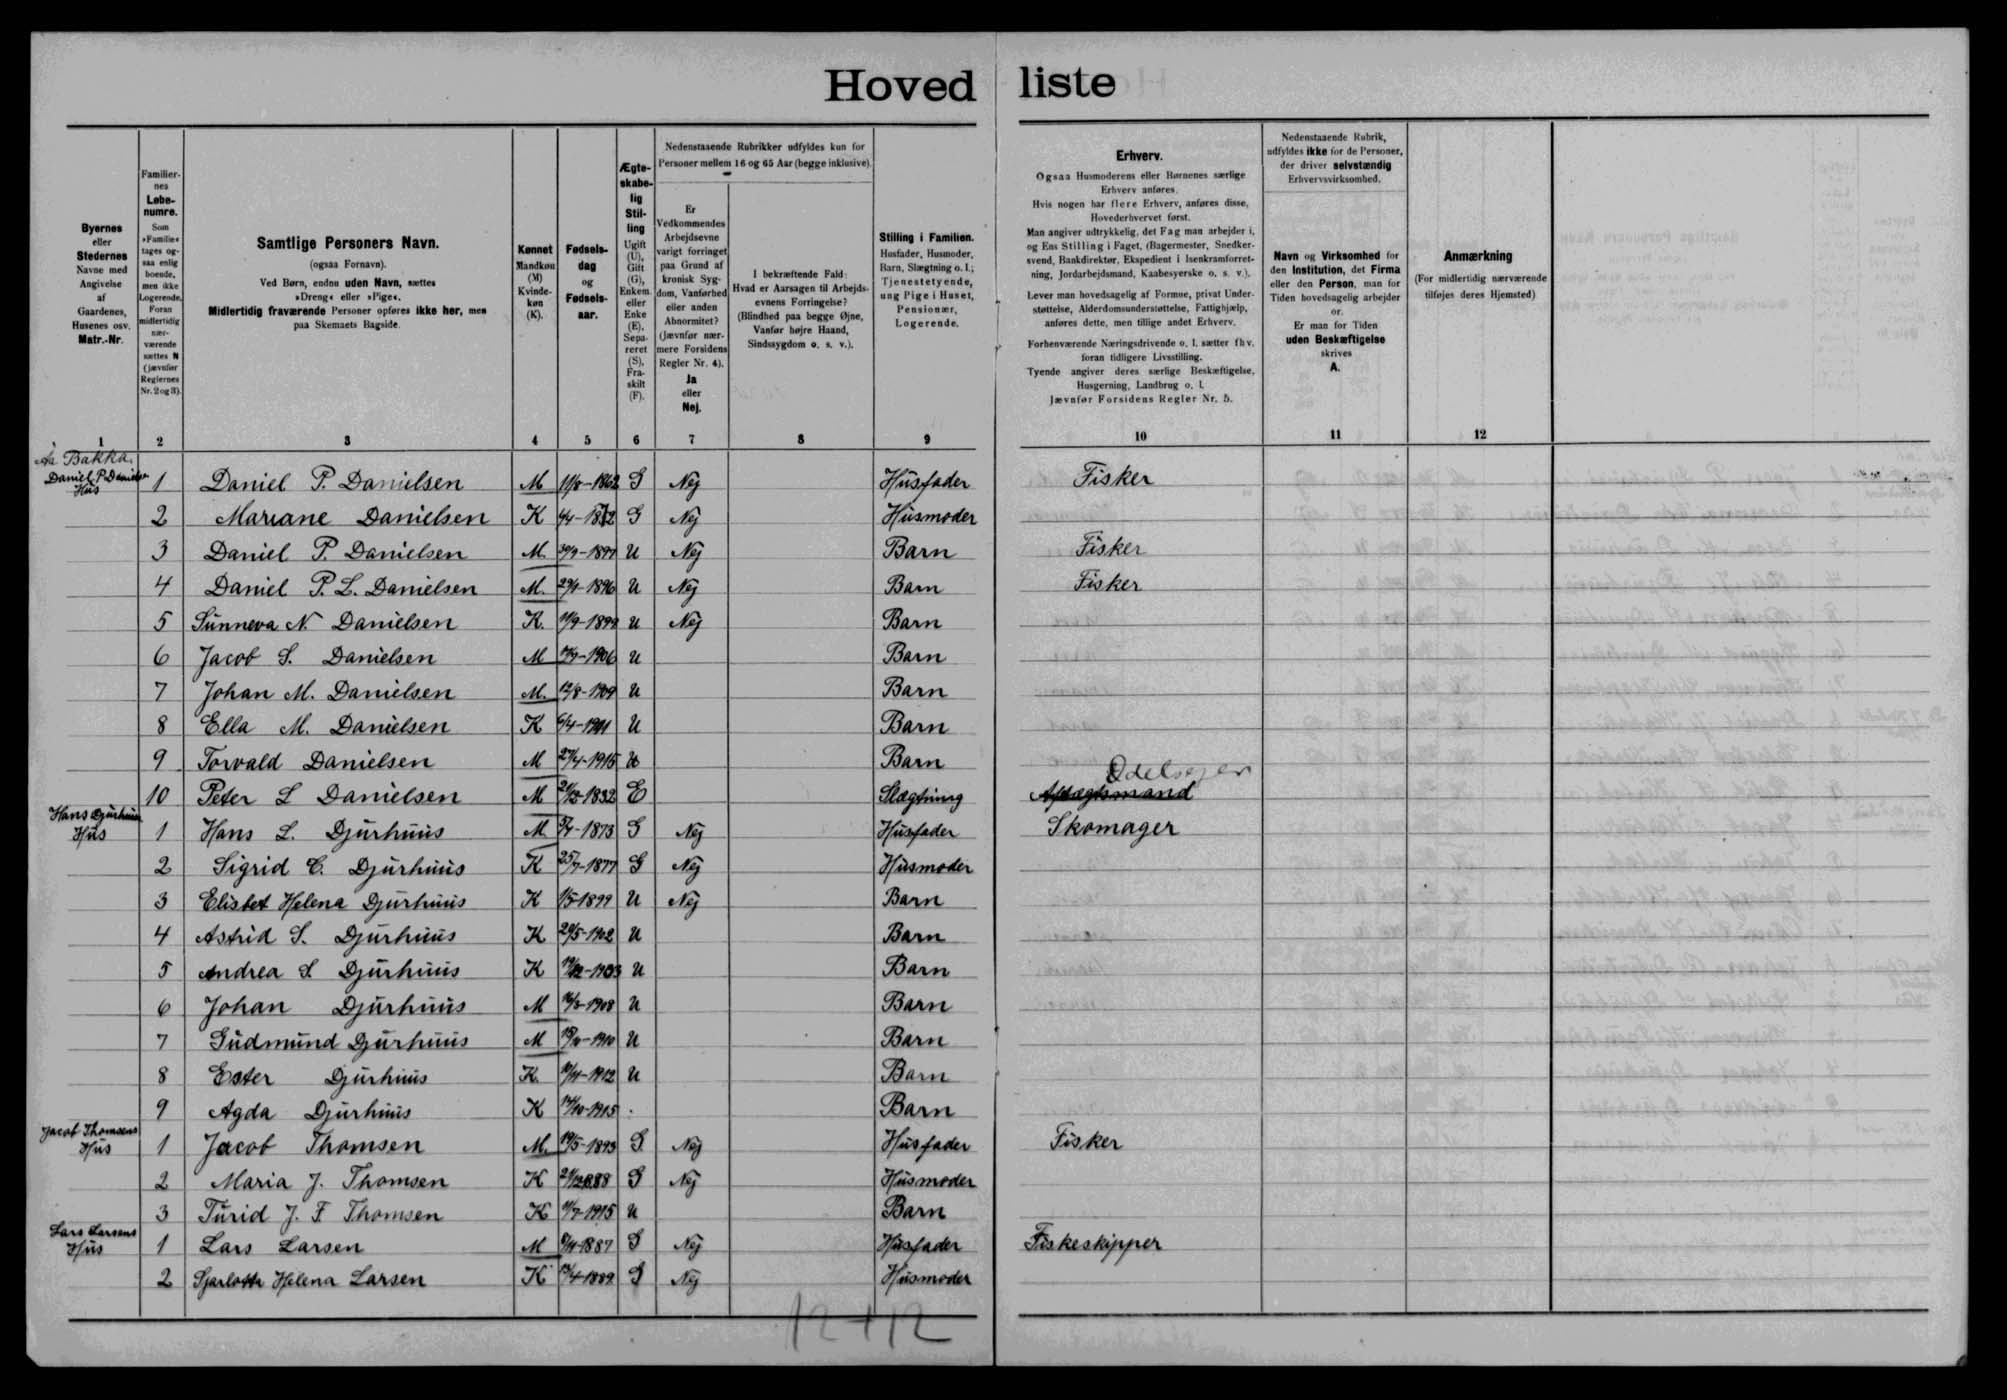 Hoved liste
Byernes
eller
Stedernes
Navne med
Angivelse
af
Gaardenes,
Husenes osv.
Matr.-Nr.
Familier-
nes
Løbe-
numre.
Som
»Familie«
tages og-
saa enlig
boende,
men ikke
Logerende.
Foran
midlertidig
nær-
værende
sættes N
(jævnfør
Reglernes
Nr. 2 og 3).
Samtlige Personers Navn.
(ogsaa Fornavn).
Ved Børn, endnu uden Navn, sættes
»Dreng« eller »Pige«.
Midlertidig fraværende Personer opføres ikke her, men
paa Skemaets Bagside.
Kønnet
Mandkøn
(M)
Kvinde-
køn
(K).
Fødsels-
dag
og
Fødsels-
aar.
Ægte-
skabe-
lig
Stil-
ling
Ugift
(U),
Gift
(G),
Enkem.
eller
Enke
(E),
Sepa-
reret
(S),
Fra-
skilt
(F).
Nedenstaaende Rubrikker udfyldes kun for
Personer mellem 16 og 65 Aar (begge inklusive).
Er
Vedkommendes
Arbejdsevne
varigt forringet
paa Grund af
kronisk Syg-
dom, Vanførhed
eller anden
Abnormitet?
(Jævnfør nær-
mere Forsidens
Regler Nr. 4).
Ja
eller
Nej.
I bekræftende Fald:
Hvad er Aarsagen til Arbejds-
evnens Forringelse?
(Blindhed paa begge Øjne,
Vanfør højre Haand,
Sindssygdom o. s. v.).
Stilling i Familien.
Husfader, Husmoder,
Barn, Slægtning o. l.;
Tjenestetyende,
ung Pige i Huset,
Pensionær,
Logerende.
Erhverv.
Ogsaa Husmoderens eller Børnenes særlige
Erhverv anføres.
Hvis nogen har flere Erhverv, anføres disse,
Hovederhvervet først.
Man angiver udtrykkelig, det Fag man arbejder i,
og Ens Stilling i Faget, (Bagermester, Snedker-
svend, Bankdirektør, Ekspedient i Isenkramforret-
ning, Jordarbejdsmand, Kaabesyerske o. s. v.).
Lever man hovedsagelig af Formue, privat Under-
støttelse, Alderdomsunderstøttelse, Fattighjælp,
anføres dette, men tillige andet Erhverv.
Forhenværende Næringsdrivende o. l. sætter fhv.
foran tidligere Livsstilling.
Tyende angiver deres særlige Beskæftigelse,
Husgerning, Landbrug o. l.
Jævnfør Forsidens Regler Nr. 5.
Nedenstaaende Rubrik,
udfyldes ikke for de Personer,
der driver selvstændig
Erhvervsvirksomhed.
Navn og Virksomhed for
den Institution, det Firma
eller den Person, man for
Tiden hovedsagelig arbejder
for.
Er man for Tiden
uden Beskæftigelse
skrives
A.
Anmærkning
(For midlertidig nærværende
tilføjes deres Hjemsted)
1 2 3 4 5 6 7 8 9 10 11 12
Aa Bakka.
Daniel P. Danielsen
Hus 1 Daniel P. Danielsen M 11/8-1862 G Nej Husfader Fisker
2 Mariane Danielsen K 4/4-1872 G Nej Husmoder
3 Daniel P. Danielsen M. U Nej Barn Fisker
4 Daniel P. L. Danielsen M. 29/1-1896 U Nej Barn Fisker
5 Sunneva N. Danielsen K. 11/9-1899 U Nej Barn
6 Jacob S. Danielsen M U Barn
7 Johan M. Danielsen M. 12/8-1909 U Barn
8 Ella M. Danielsen K 6/4-1911 U Barn
9 Torvald Danielsen M 27/4-1915 U Barn
Odelsejer
10 Peter L Danielsen M 21/12-1832 E Slægtning Aftægtsmand
Hans Djurhuus
Hus 1 Hans L. Djurhuus M. G Nej Husfader Skomager
2 Sigrid C. Djurhuus K 25/7-1877 G Nej Husmoder
3 Elisbet Helena Djurhuus K 1/5-1899 U Nej Barn
4 Astrid S. Djurhuus K 29/5-1902 U Barn
5 Andrea S. Djurhuus K 19/12-1903 U Barn
6 Johan Djurhuus M 16/3-1908 U Barn
7 Gudmund Djurhuus M U Barn
8 Ester Djurhuus K. 10/11-1912 U Barn
9 Agda Djurhuus K 14/10-1915 . Barn
Jacob Thomsens
Hus 1 Jacob Thomsen M. 19/5-1893 G Nej Husfader Fisker
2 Maria J. Thomsen K 21/12-1888 G Nej Husmoder
3 Turid J. F Thomsen K 11/7-1915 U Barn
Lars Larsens
Hus 1 Lars Larsen M 9/11-1887 G Nej Husfader Fiskeskipper
2 Sjarlotte Helena Larsen K 13/4-1889 G Nej Husmoder
12+12